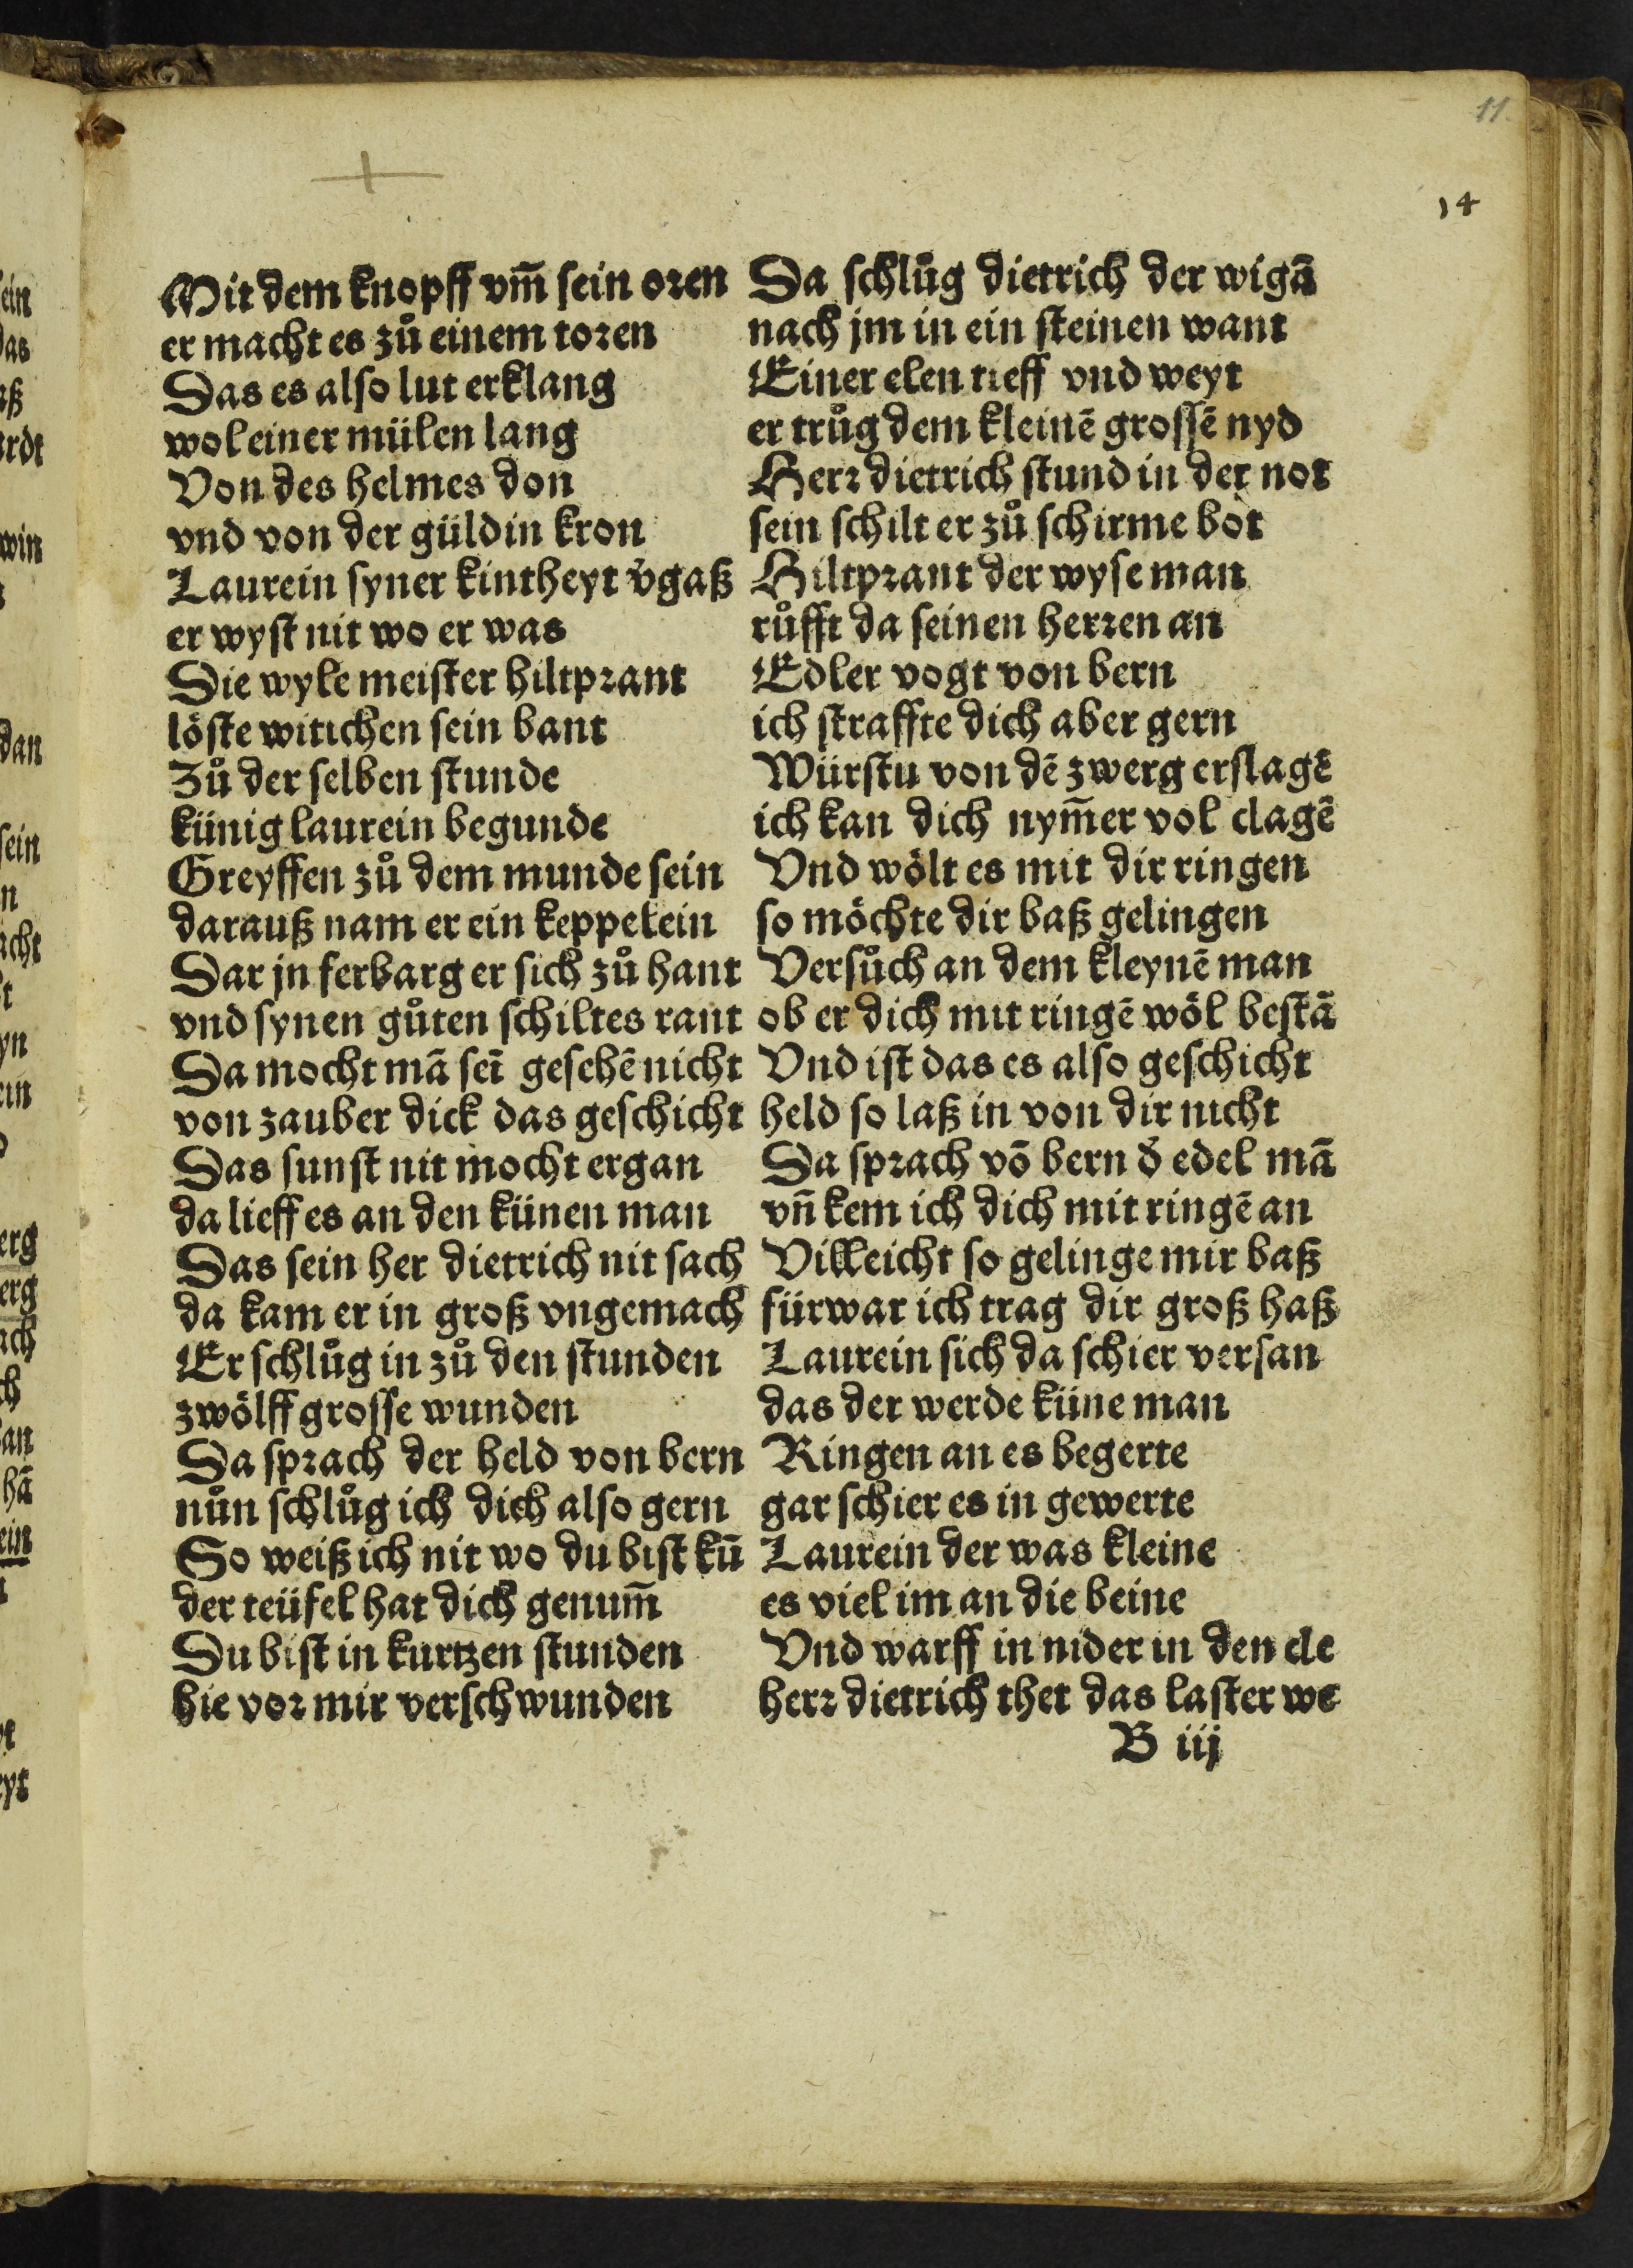 11.
14
Mit dem knopff vm̃ sein oren
er macht es zů einem toren
Das es also lut erklang
wol einer mülen lang
Von des helmes don
vnd von der güldin kron
Laurein syner kintheyt v̉gaß
er wyst nit wo er was
Die wyle meister hiltprant
löste witichen sein bant
Zů der selben stunde
künig laurein begunde
Greyffen zů dem munde sein
darauß nam er ein keppelein
Dar jn ferbarg er sich zů hant
vnd synen gůten schiltes rant
Da mocht mā seī gesehē nicht
von zauber dick das geschicht
Das sunst nit mocht ergan
da lieff es an den künen man
Das sein her dietrich nit sach
da kam er in groß vngemach
Er schlůg in zů den stunden
zwölff grosse wunden
Da sprach der held von bern
nůn schlůg ich dich also gern
So weiß ich nit wo du bist kū
der teüfel hat dich genum̃
Du bist in kurtzen stunden
hie vor mir verschwunden
Da schlůg dietrich der wigā
nach jm in ein steinen want
Einer elen tieff vnd weyt
er trůg dem kleinē grossē nyd
Herr dietrich stund in der not
sein schilt er zů schirme bot
Hiltprant der wyse man
růfft da seinen herren an
Edler vogt von bern
ich straffte dich aber gern
Würstu von dē zwerg erslagē
ich kan dich nym̃er vol clagē
Vnd wölt es mit dir ringen
so möchte dir baß gelingen
Versůch an dem kleynē man
ob er dich mit ringē wöl bestā
Vnd ist das es also geschicht
held so laß in von dir nicht
Da sprach vō bern d̉ edel mā
vn̄ kem ich dich mit ringē an
Villeicht so gelinge mir baß
fürwar ich trag dir groß haß
Laurein sich da schier versan
das der werde küne man
Ringen an es begerte
gar schier es in gewerte
Laurein der was kleine
es viel im an die beine
Vnd warff in nider in den cle
herr dietrich thet das laster we
B iij